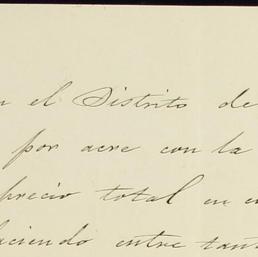 el Distrito de
por acre con la
precio total en
entre